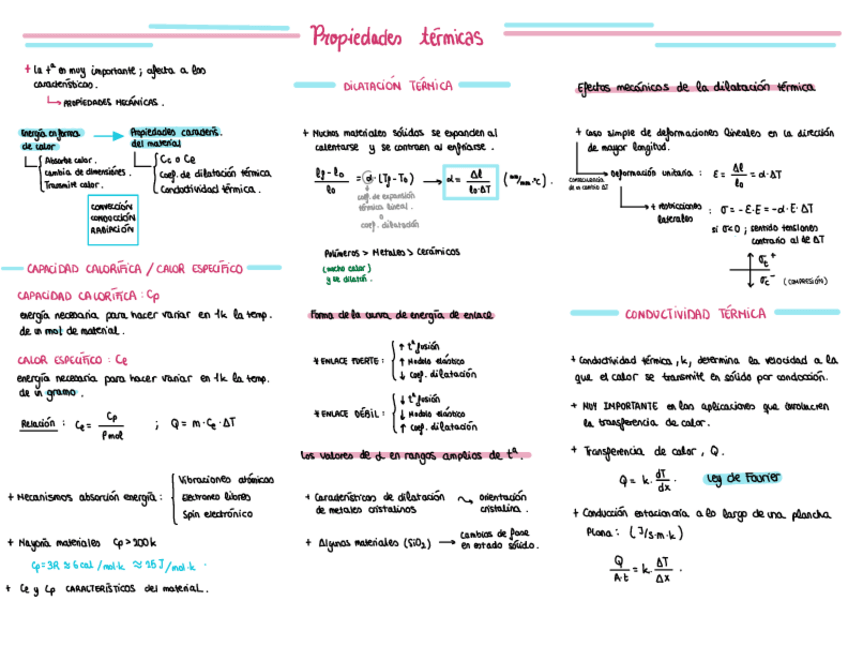 Propiedades térmicas
+ La tª es muy importante ; afecta a las
características.
↳ PROPIEDADES MECÁNICAS.
Energía en forma
de calor
→
Propiedades caracterís.
del material
Absorbe calor.
cambia de dimensiones.
Transmite calor.
Cc o Ce
Coef. de dilatación térmica
Conductividad térmica.
CONVECCIÓN
CONDUCCIÓN
RADIACIÓN
CAPACIDAD CALORÍFICA / CALOR ESPECÍFICO
CAPACIDAD CALORÍFICA : Cp
energía necesaria para hacer variar en 1k la temp.
de un mol de material.
CALOR ESPECÍFICO : Ce
energía necesaria para hacer variar en 1k la temp.
de un gramo.
Relación : Ce = Cp / Pmol ; Q = m · Ce · ΔT
+ Mecanismos absorción energía :
Vibraciones atómicas
Electrones libres
Spin electrónico
+ Mayoría materiales Cp > 200k
+ Ce y Cp CARACTERÍSTICOS del material.
DILATACIÓN TÉRMICA
+ Muchos materiales sólidos se expanden al
calentarse y se contraen al enfriarse.
lf - l0 / l0 = α · (Tf - T0) → α = Δl / l0 · ΔT (mm/mm·ºC).
coef. de expansión
térmica lineal.
o
coef. dilatación
Polímeros > Metales > Cerámicos
(mucho calor)
y se dilatan.
Forma de la curva de energía de enlace
* ENLACE FUERTE :
↑ tª fusión
↑ Modulo elástico
↓ Coef. dilatación
* ENLACE DÉBIL :
↓ tª fusión
↓ Modulo elástico
↑ Coef. dilatación
Los valores de α en rangos amplios de tª.
+ Características de dilatación
de metales cristalinos
orientación
cristalina.
+ Algunos materiales (SiO2) →
cambios de fase
en estado sólido.
Efectos mecánicos de la dilatación térmica
+ Caso simple de deformaciones lineales en la dirección
de mayor longitud.
→ Deformación unitaria : ε = Δl / l0 = α · ΔT
de un cambio ΔT
→ + restricciones
laterales : σ = - ε · E = - α · E · ΔT
si σ<0 ; sentido tensiones
contrario al de ΔT
σt +
σc - (COMPRESIÓN)
CONDUCTIVIDAD TÉRMICA
+ Conductividad térmica, k, determina la velocidad a la
que el calor se transmite en sólido por conducción.
+ MUY IMPORTANTE en las aplicaciones que involucren
la transferencia de calor.
+ Transferencia de calor, Q.
Q = k · dT / dx . Ley de Fourier
+ Conducción estacionaria a lo largo de una plancha
plana : (J/s·m·k)
Q / A·t = k · ΔT / Δx .